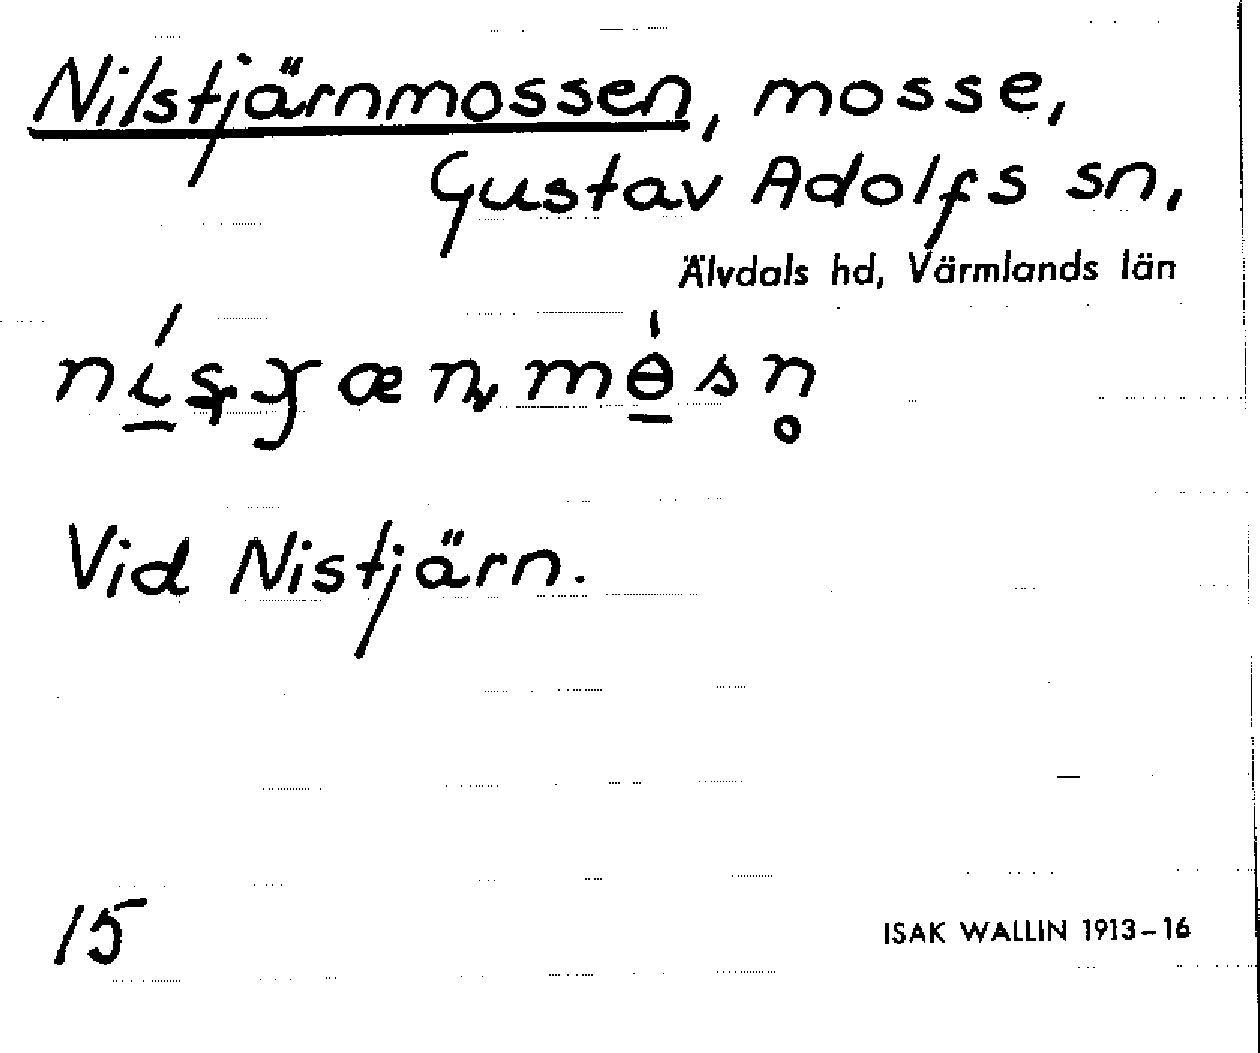 Nilstjärnmossen, mosse,
Gustav Adolfs sn,
Älvdals hd, Värmlands län
Vid Nistjärn.
15
ISAK WALLIN 1913–16